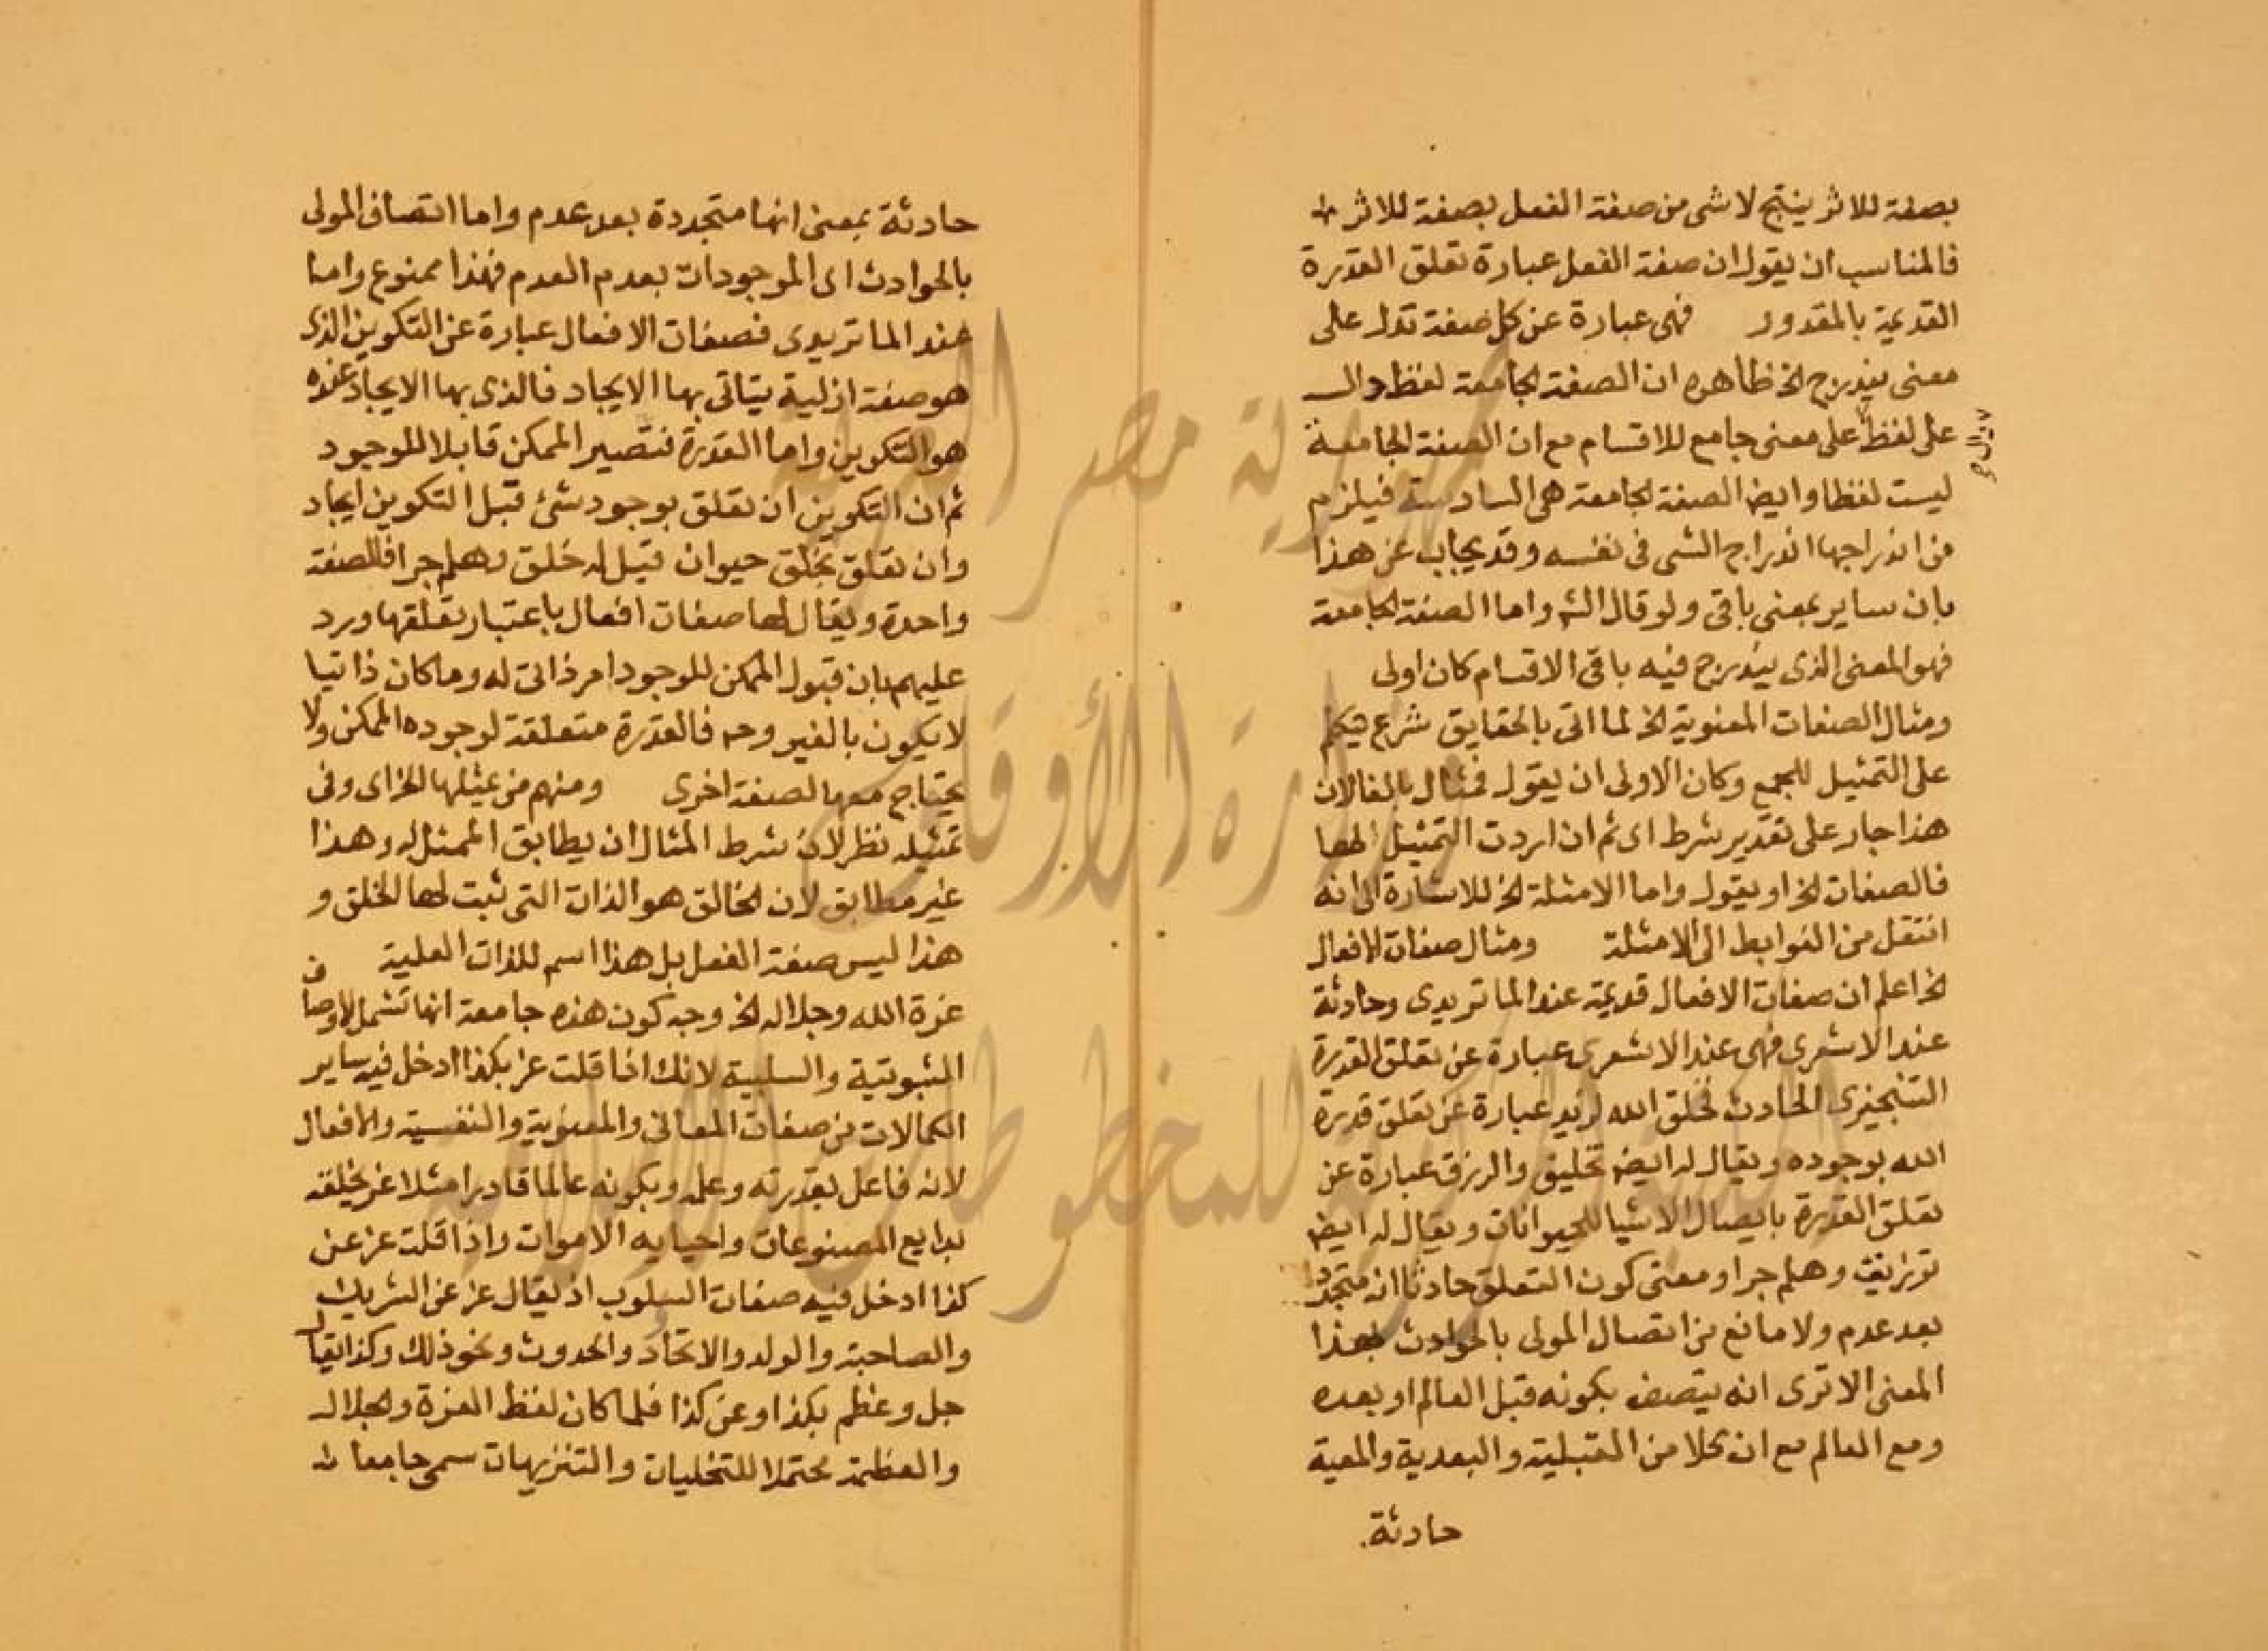 بصفة للاثر ينتج لا شى من صفة الفعل بصفة للاثر
فالمناسب ان يقول ان صفة الفعل عبارة تعلق القدرة
القديمة بالمقدور فهى عبارة عن كل صفة تدل على
معنى يندرج الخ ظاهره ان الصفة الجامعة لفظ دال
على لفظ على معنى جامع للاقسام مع ان الصفة الجامعة
ليست لفظا وايض الصفة الجامعة هى السادسة فيلزم
من اندراجها اندراج الشى فى نفسه وقد يجاب عن هذا
بان ساير بمعنى باقى ولو قال الش واما الصفة الجامعة
فهو المعنى الذى يندرج فيه باقى الاقسام كان اولى
ومثال الصفات المعنوية الخ لما اتى بالحقايق شرع يتكلم
على التمثيل للجمع وكان الاولى ان يقول فمثال بالفا لان
هذا جار على تقدير شرط اى ثم ان اردت التمثيل لها
فالصفات الخ او يقول واما الامثلة الخ للاشارة الى انه
انتقل من الضوابط الى الامثلة ومثال صفات الافعال
الخ اعلم ان صفات الافعال قديمة عند الماتريدى وحادثة
عند الاشعرى فهى عند الاشعرى عبارة عن تعلق القدرة
التنجيزى الحادث فخلق الله لزيد عبارة عن تعلق قدرة
الله بوجوده ويقال له ايض تخليق والرزق عبارة عن
تعلق القدرة بايصال الاشيا للحيوانات ويقال له ايض
ترزيق وهلم جرا ومعنى كون التعلق حادثا انه متجدد
بعد عدم ولا مانع من اتصال المولى بالحوادث بهذا
المعنى الا ترى انه يتصف بكونه قبل العالم او بعده
ومع العالم مع ان كلا من القبلية والبعدية والمعية
حادثة
حادثة بمعنى انها متجددة بعد عدم واما اتصاف المولى
بالحوادث اى الموجودات بعدم العدم فهذا ممنوع واما
عند الماتريدى فصفات الافعال عبارة عن التكوين الذى
هو صفة ازلية يتاتى بها الايجاد فالذى بها الايجاد عنده
هو التكوين واما القدرة فتصير الممكن قابلا للوجود
ثم ان التكوين ان تعلق بوجود شئ قيل التكوين ايجاد
وان تعلق بخلق حيوان قيل له خلق وهلم جرا فالصفة
واحدة ويقال لها صفات افعال باعتبار تعلقها ورد
عليهم بان قبول الممكن للوجود امر ذاتى له وما كان ذاتيا
لا يكون بالغير وحه فالقدرة متعلقة لوجوده الممكن ولا
يحتاج معها لصفة اخرى ومنهم من يمثلها الخ اى وفى
تمثيله نظر لان شرط المثال ان يطابق الممثل له وهذا
غير مطابق لان الخالق هو الذات التى ثبت لها الخلق و
هذا ليس صفة الفعل بل هذا اسم للذات العلية
عزة الله وجلاله الخ وجه كون هذه جامعة انها تشمل الاوصاف
الثبوتية والسلبية لانك اذا قلت عز بكذا ادخل فيه ساير
الكمالات من صفات المعانى والمعنوية والنفسية والافعال
لانه فاعل بقدرته وعلمه وبكونه عالما قادرا مثلا عز بخلقه
بدايع المصنوعات واحيايه الاموات واذا قلت عز عن
كذا ادخل فيه صفات السلوب اذ يقال عز عن الشريك
والصاحبة والولد والاتحاد والحدوث ونحو ذلك وكذا يقال
جل وعظم بكذا وعن كذا فلما كان لفظ العزة والجلال
والعظمة محتملا للتخليات والتنزيهات سمى جامعا
جمهورية مصر العربية
وزارة الأوقاف
المكتبة المركزية للمخطوطات الإسلامية